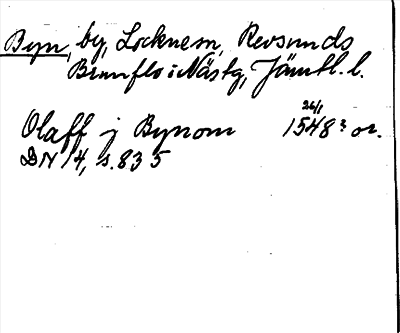 Byn, by, Locknem, Revsunds
Brunflo i Nästg, Jämtl. l.
26/1
Olaff j Bynom 1548 ? or.
DN 14, s. 835